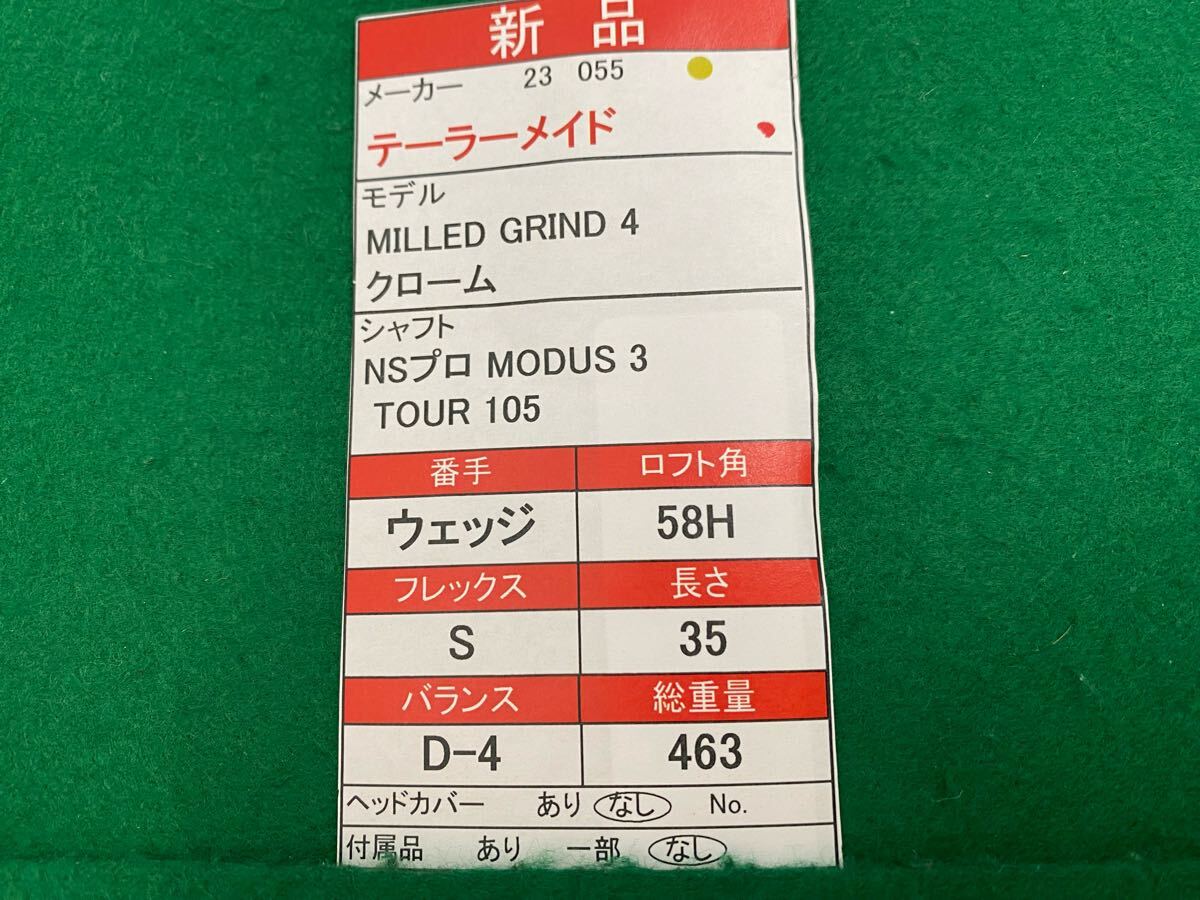 新 品
メーカー 23 055
テーラーメイド
モデル
MILLED GRIND 4
クローム
シャフト
NSプロ MODUS 3
TOUR 105
番手 ロフト角
ウェッジ 58H
フレックス 長さ
S 35
バランス 総重量
D-4 463
ヘッドカバー あり なし No.
付属品 あり 一部 なし